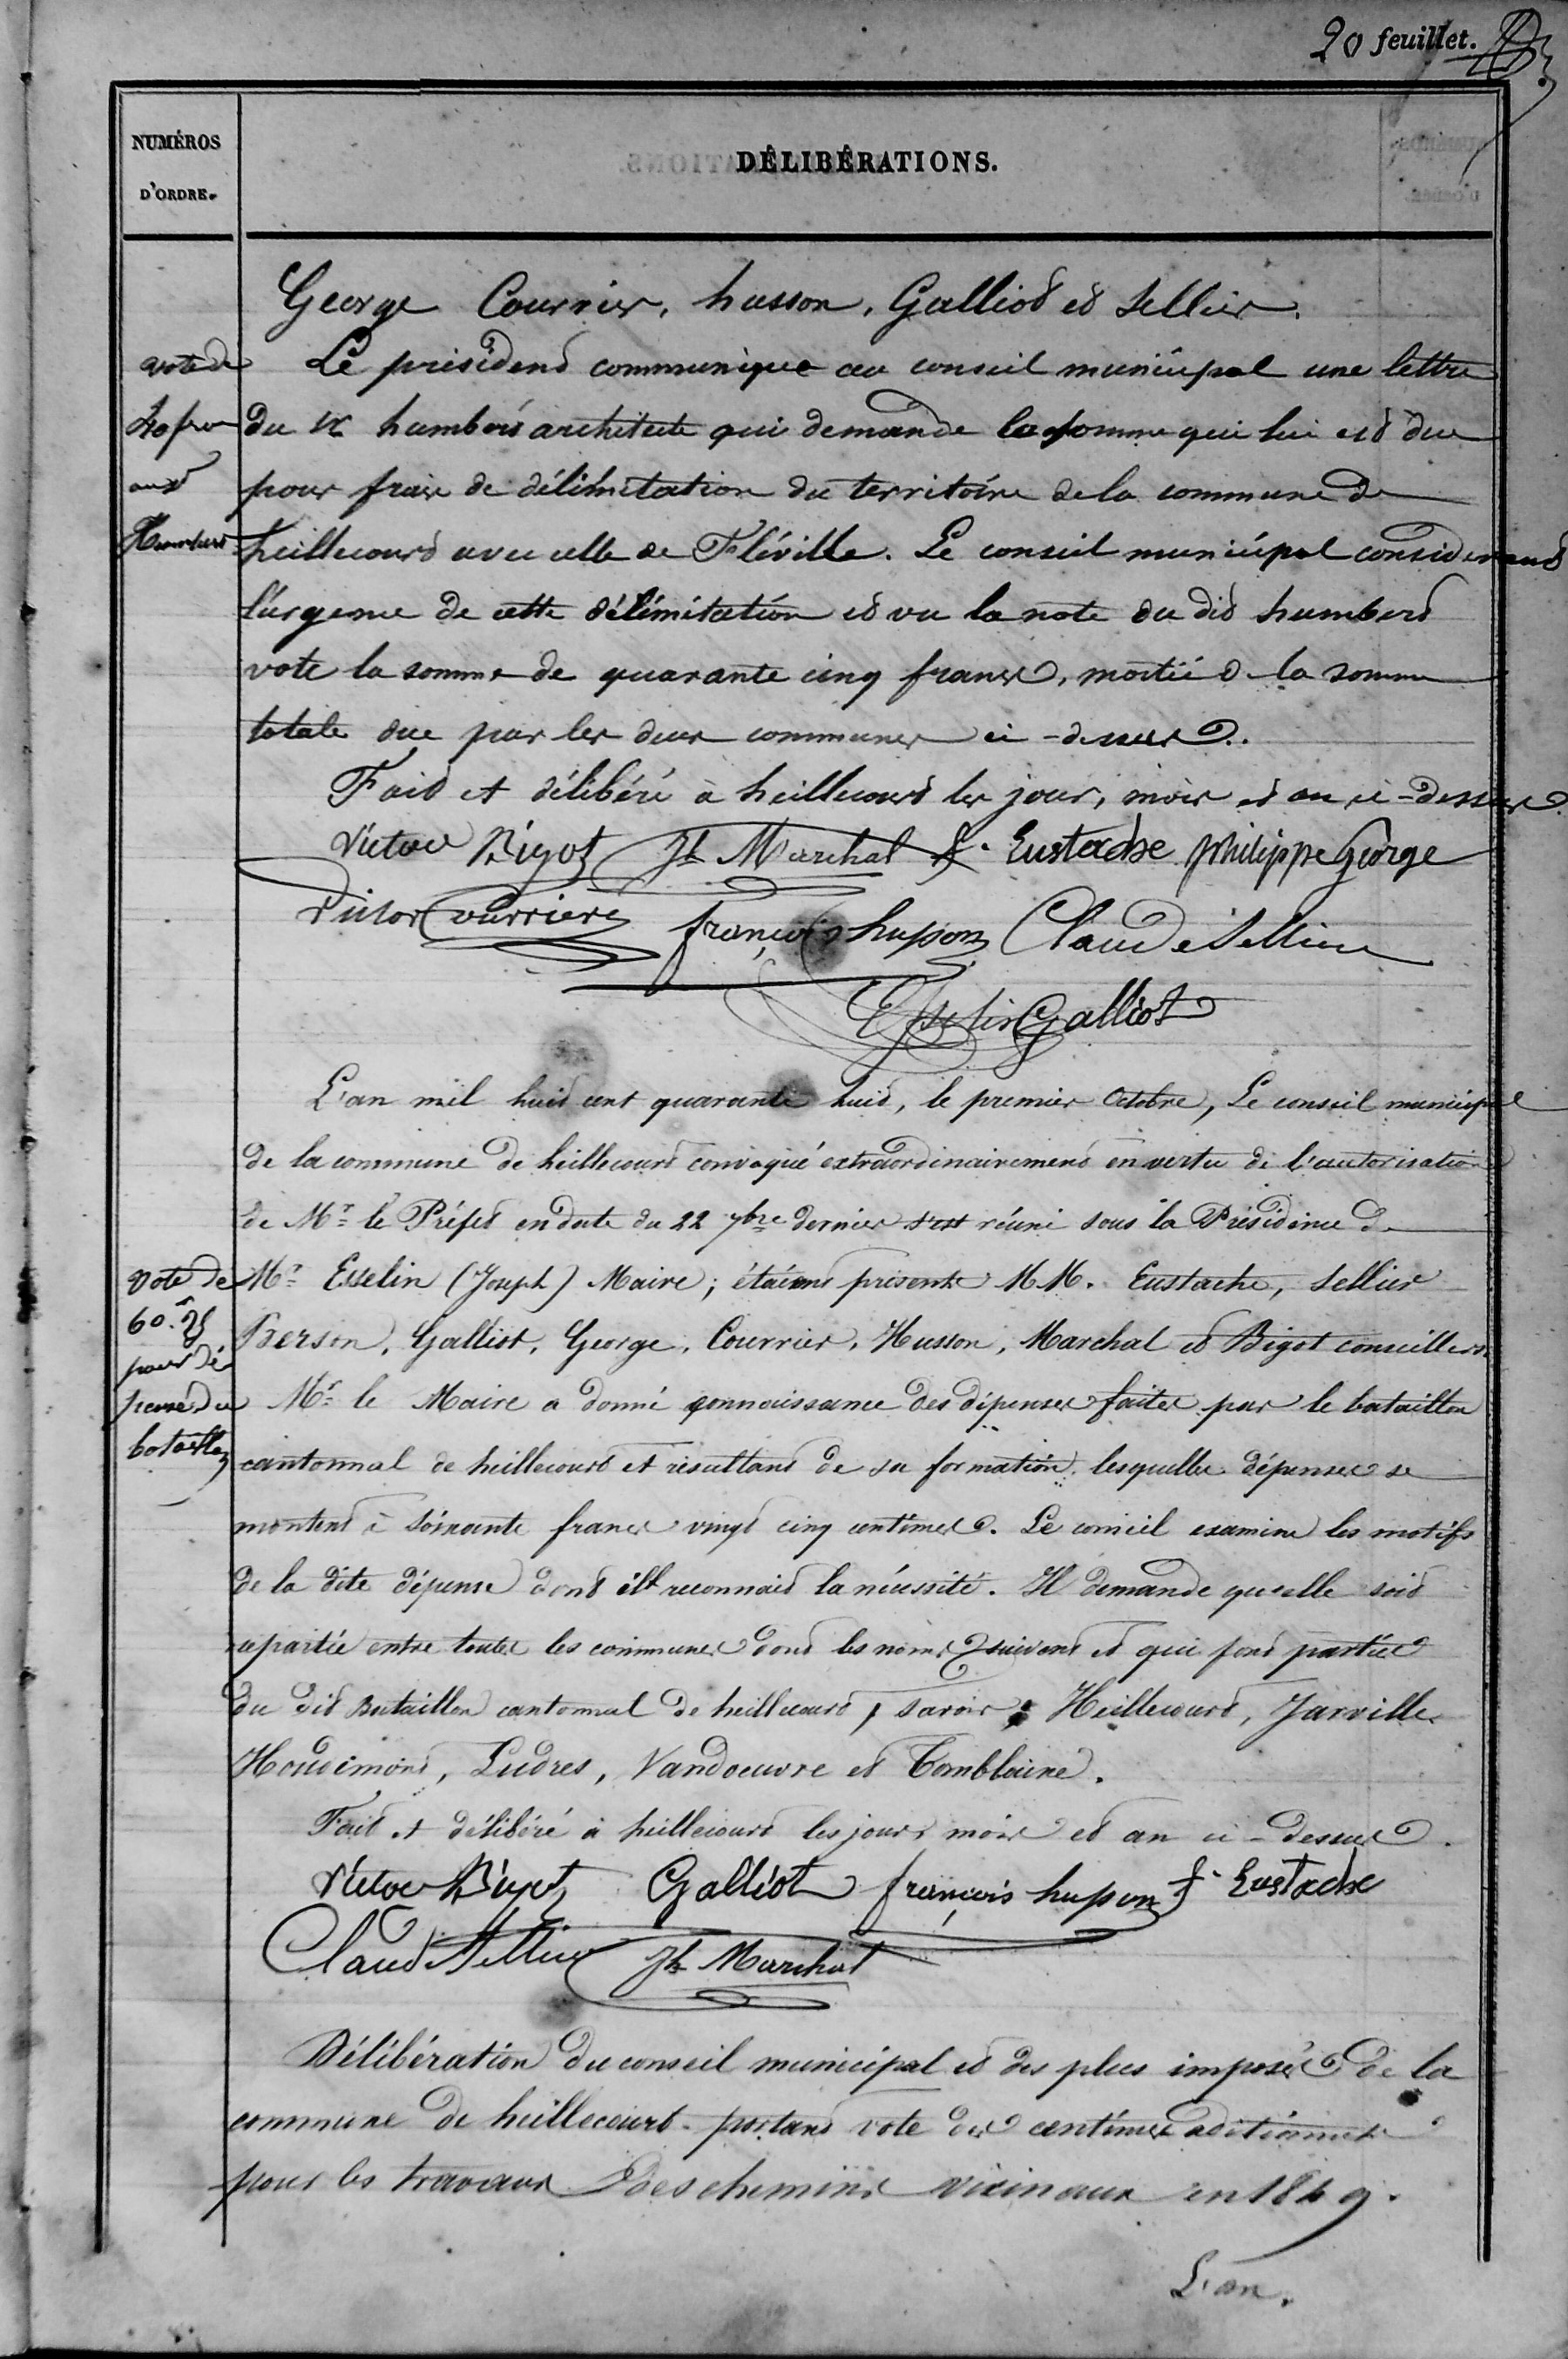 20 feuillet.
NUMÉROS
D'ORDRE.
DÉLIBÉRATIONS.
George Courrier, husson, Galliot et Sellier.
vote de
Le président communique au conseil municipal une lettre
du Sr humbert architecte qui demande la somme qui lui est due
aux
pour frais de délimitation du territoire de la commune de
heillecourt avec celle de Fléville. Le conseil municipal considerant
l'urgence de cette délimitation et vu la note du dit humbert
vote la somme de quarante cinq francs, moitié de la somme
totale due par les deux communes ci-dessus.
Fait et délibéré à heillecourt les jour, mois et an ci-dessus
Victor Bigot Jh Marchal f. Eustache philippe George
Victor Courrier françois huson Claude Sellier
Esselin Galliot
L'an mil huit cent quarante huit, le premier Octobre, Le conseil municipal
de la commune de heillecourt convoqué extraordinairement en vertu de l'autorisation
de Mr. le Préfet en date du 22 7bre dernier s'est réuni sous la Présidence de
Vote de
Mr. Esselin (Joseph) Maire; étaient présents MM. Eustache, Sellier
60f.25
Berson, Galliot, George, Courrier, Husson, Marchal et Bigot conseillers.
pour dé
pense du
Mr. le Maire a donné connaissance des dépenses faites par le bataillon
bataillon
cantonnal de heillecourt et résultant de sa formation, lesquelles dépenses se
montent à soixante francs vingt cinq centimes. Le conseil examine les motifs
de la dite dépense dont il reconnait la nécessité. Il demande qu'elle soit
repartie entre toutes les communes dont les noms suivent et qui font parties
du dit Bataillon cantonnal de heillecourt, savoir: Heillecourt, Jarville,
Houdemont, Ludres, Vandoeuvre et Tomblaine.
Fait et délibéré à heillecourt les jour, mois et an ci-dessus.
Victor Bigot Galliot françois huson f. Eustache
Claude Sellier Jh Marchal
Délibération du conseil municipal et des plus imposés de la
commune de heillecourt portant vote des centimes aditionnels
pour les travaux des chemins vicinaux en 1849.
L'an.